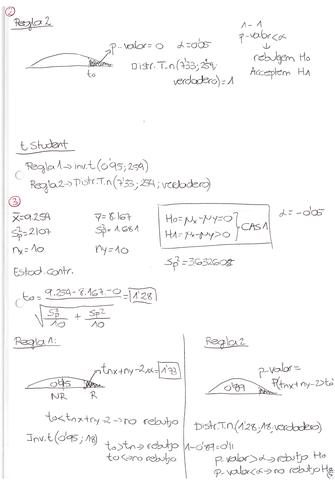 ②
Regla 2
p-valor = 0 α=0'05
Distr.T.n(7'33; 254; verdadero) = 1
to
1 - 1
p-valor<α
↓
rebutgem Ho
Acceptem H1
t Student
Regla 1 → inv.t (0'95; 254)
Regla 2 → Distr.T.n (7'33; 254; verdadero)
③
x̄ = 9.254 ȳ = 8.167
nx = 10 ny = 10
Ho = μx - μy = 0
H1 = μx - μy > 0
CAS 1
α = -0'05
Sp² = 3632608
Estad. contr.
to = 9.254 - 8.167 - 0 = 1'28
Sp²/10 + Sp²/10
Regla 1:
tnx+ny-2,α = 1'73
0'95
NR R
to < tnx+ny-2 → no rebutjo
Inv.t (0'95; 18)
to > tn → rebutjo
to < → no rebutjo
Regla 2
p-valor =
P(tnx+ny-2 > to)
0'89
Distr.T.n (1'28; 18; verdadero)
1 - 0'89 = 0'11
p-valor > α → rebutjo Ho
p-valor < α → no rebutjo Ho